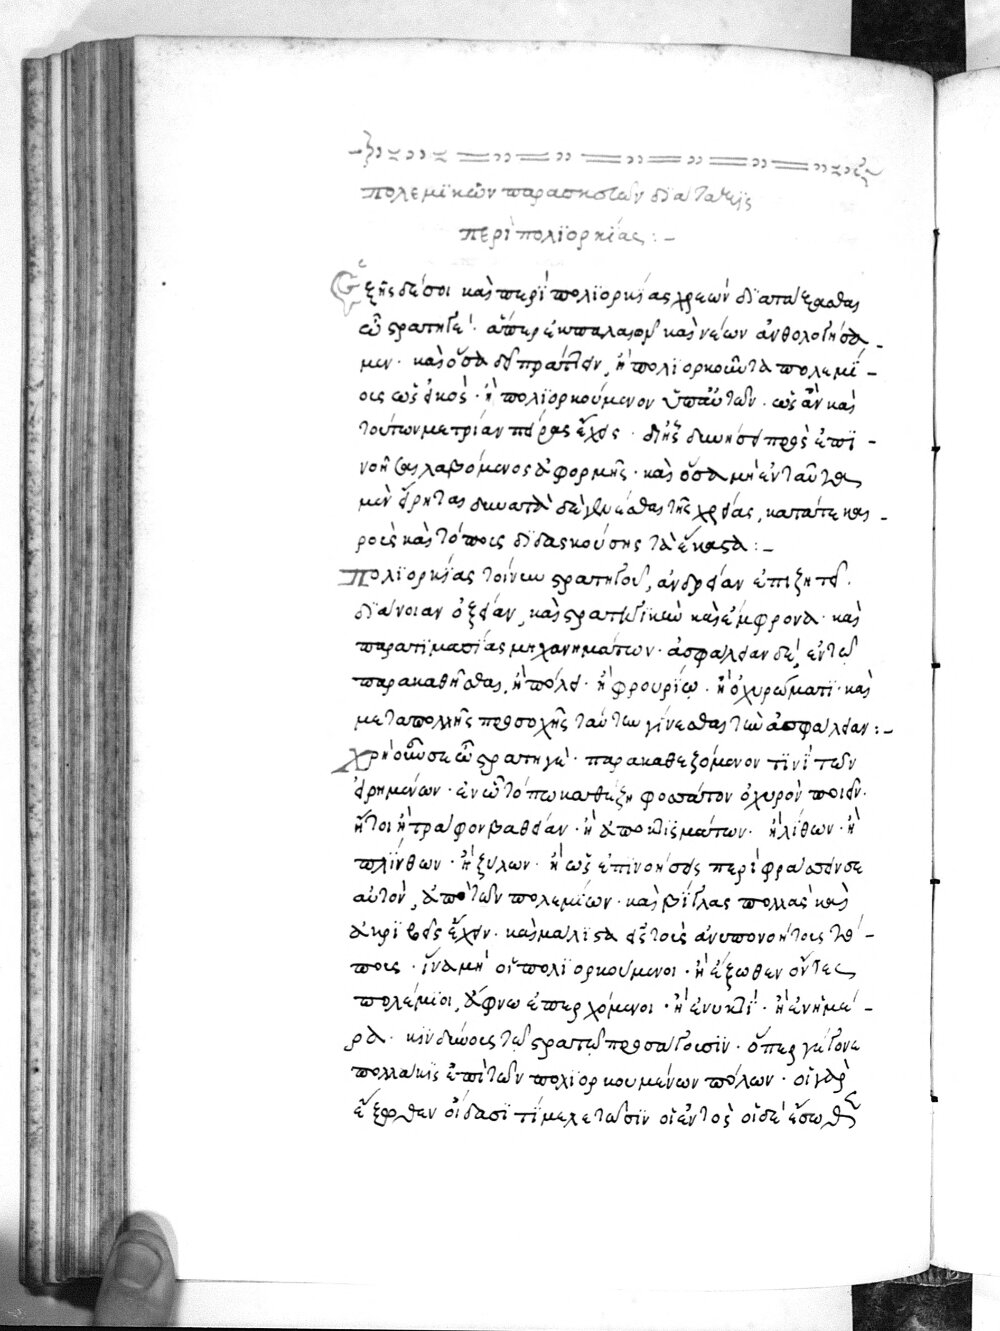 πολεμϊκῶν παρασκευῶν δϊάταξϊς
περὶ πολϊορκίας : –
Ἑξῆς δέ σοι καὶ περὶ πολϊορκίας χρεὼν δϊαταξασθαι
ὦ στρατηγέ· ἅπερ ἐκ παλαιῶν καὶ νέων ἀνθολογήσα-
μεν· καὶ ὅσα δεῖ πράττειν, ἢ πολϊορκοῦντα πολεμί-
οις ὡς εἰκὸς· ἢ πολϊορκούμενον ὑπ' αὐτῶν· ὡς ἂν καὶ
τούτων μετρίαν πεῖραν ἔχοις· δι' ἧς δυνήσει πρὸς ἐπϊ-
νοῆσαι λαβόμενος ἀφορμῆς· καὶ ὅσα μὴ ἐνταῦθα
μὲν εἴρηται δυνατὰ δὲ γενέσθαι τῆς χρείας, κατά τε και-
ροὺς καὶ τόποις δϊδασκούσης τὰ ἕκαστα : –
Πολϊορκίας τοίνυν στρατηγοῦ, ἀνδρείαν ἐπιζητεῖ·
δϊάνοιαν ὀξείαν, καὶ στρατηγϊκὴν καὶ ἔμφρονα· καὶ
παρατϊμασίας μηχανημάτων· ἀσφάλειαν δὲ, ἐν τῷ
παρακαθῆσθαι, ἢ πόλει· ἢ φρουρίῳ· ἢ ὀχυρώματι· καὶ
μετὰ πολλῆς προσοχῆς ταύτην γίνεσθαι τὴν ἀσφάλειαν : –
Χρὴ οὖν σε ὦ στρατηγὲ· παρακαθεζόμενον τϊνϊ τῶν
εἰρημένων· ἐν ᾧ τόπω καθέζη φοσσάτον ὀχυρὸν ποιεῖν·
ἤτοι ἢ τράφον βαθείαν· ἢ ἀπὸ κλϊσμάτων· ἢ λίθων· ἢ
πλίνθων· ἢ ξύλων· ἢ ὡς ἐπϊνοήσεις περϊφράσσειν σε
αὐτὸν, ἀπὸ τῶν πολεμίων· καὶ βίγλας πολλὰς καὶ
ἀκρϊβεῖς ἔχειν· καὶ μάλϊστα εἰς τοὺς ἀνυπονοήτοις τό-
ποις· ἵνα μὴ οἱ πολϊορκούμενοι· ἢ ἔξωθεν ὄντες
πολέμϊοι, ἄφνω ἐπερχόμενοι· ἢ ἐν νυκτί· ἢ ἐν ἡμέ-
ρα· κϊνδύνοις τῷ στρατῷ προσάγοισϊν· ὅπερ γέγονε
πολλάκϊς ἐπὶ τῶν πολϊορκουμένων πόλεων· οἱ γὰρ
ἔξωθεν οἴδασϊ τί μελετῶσϊν οἱ ἐντὸς οἱ δὲ ἔσωθεν